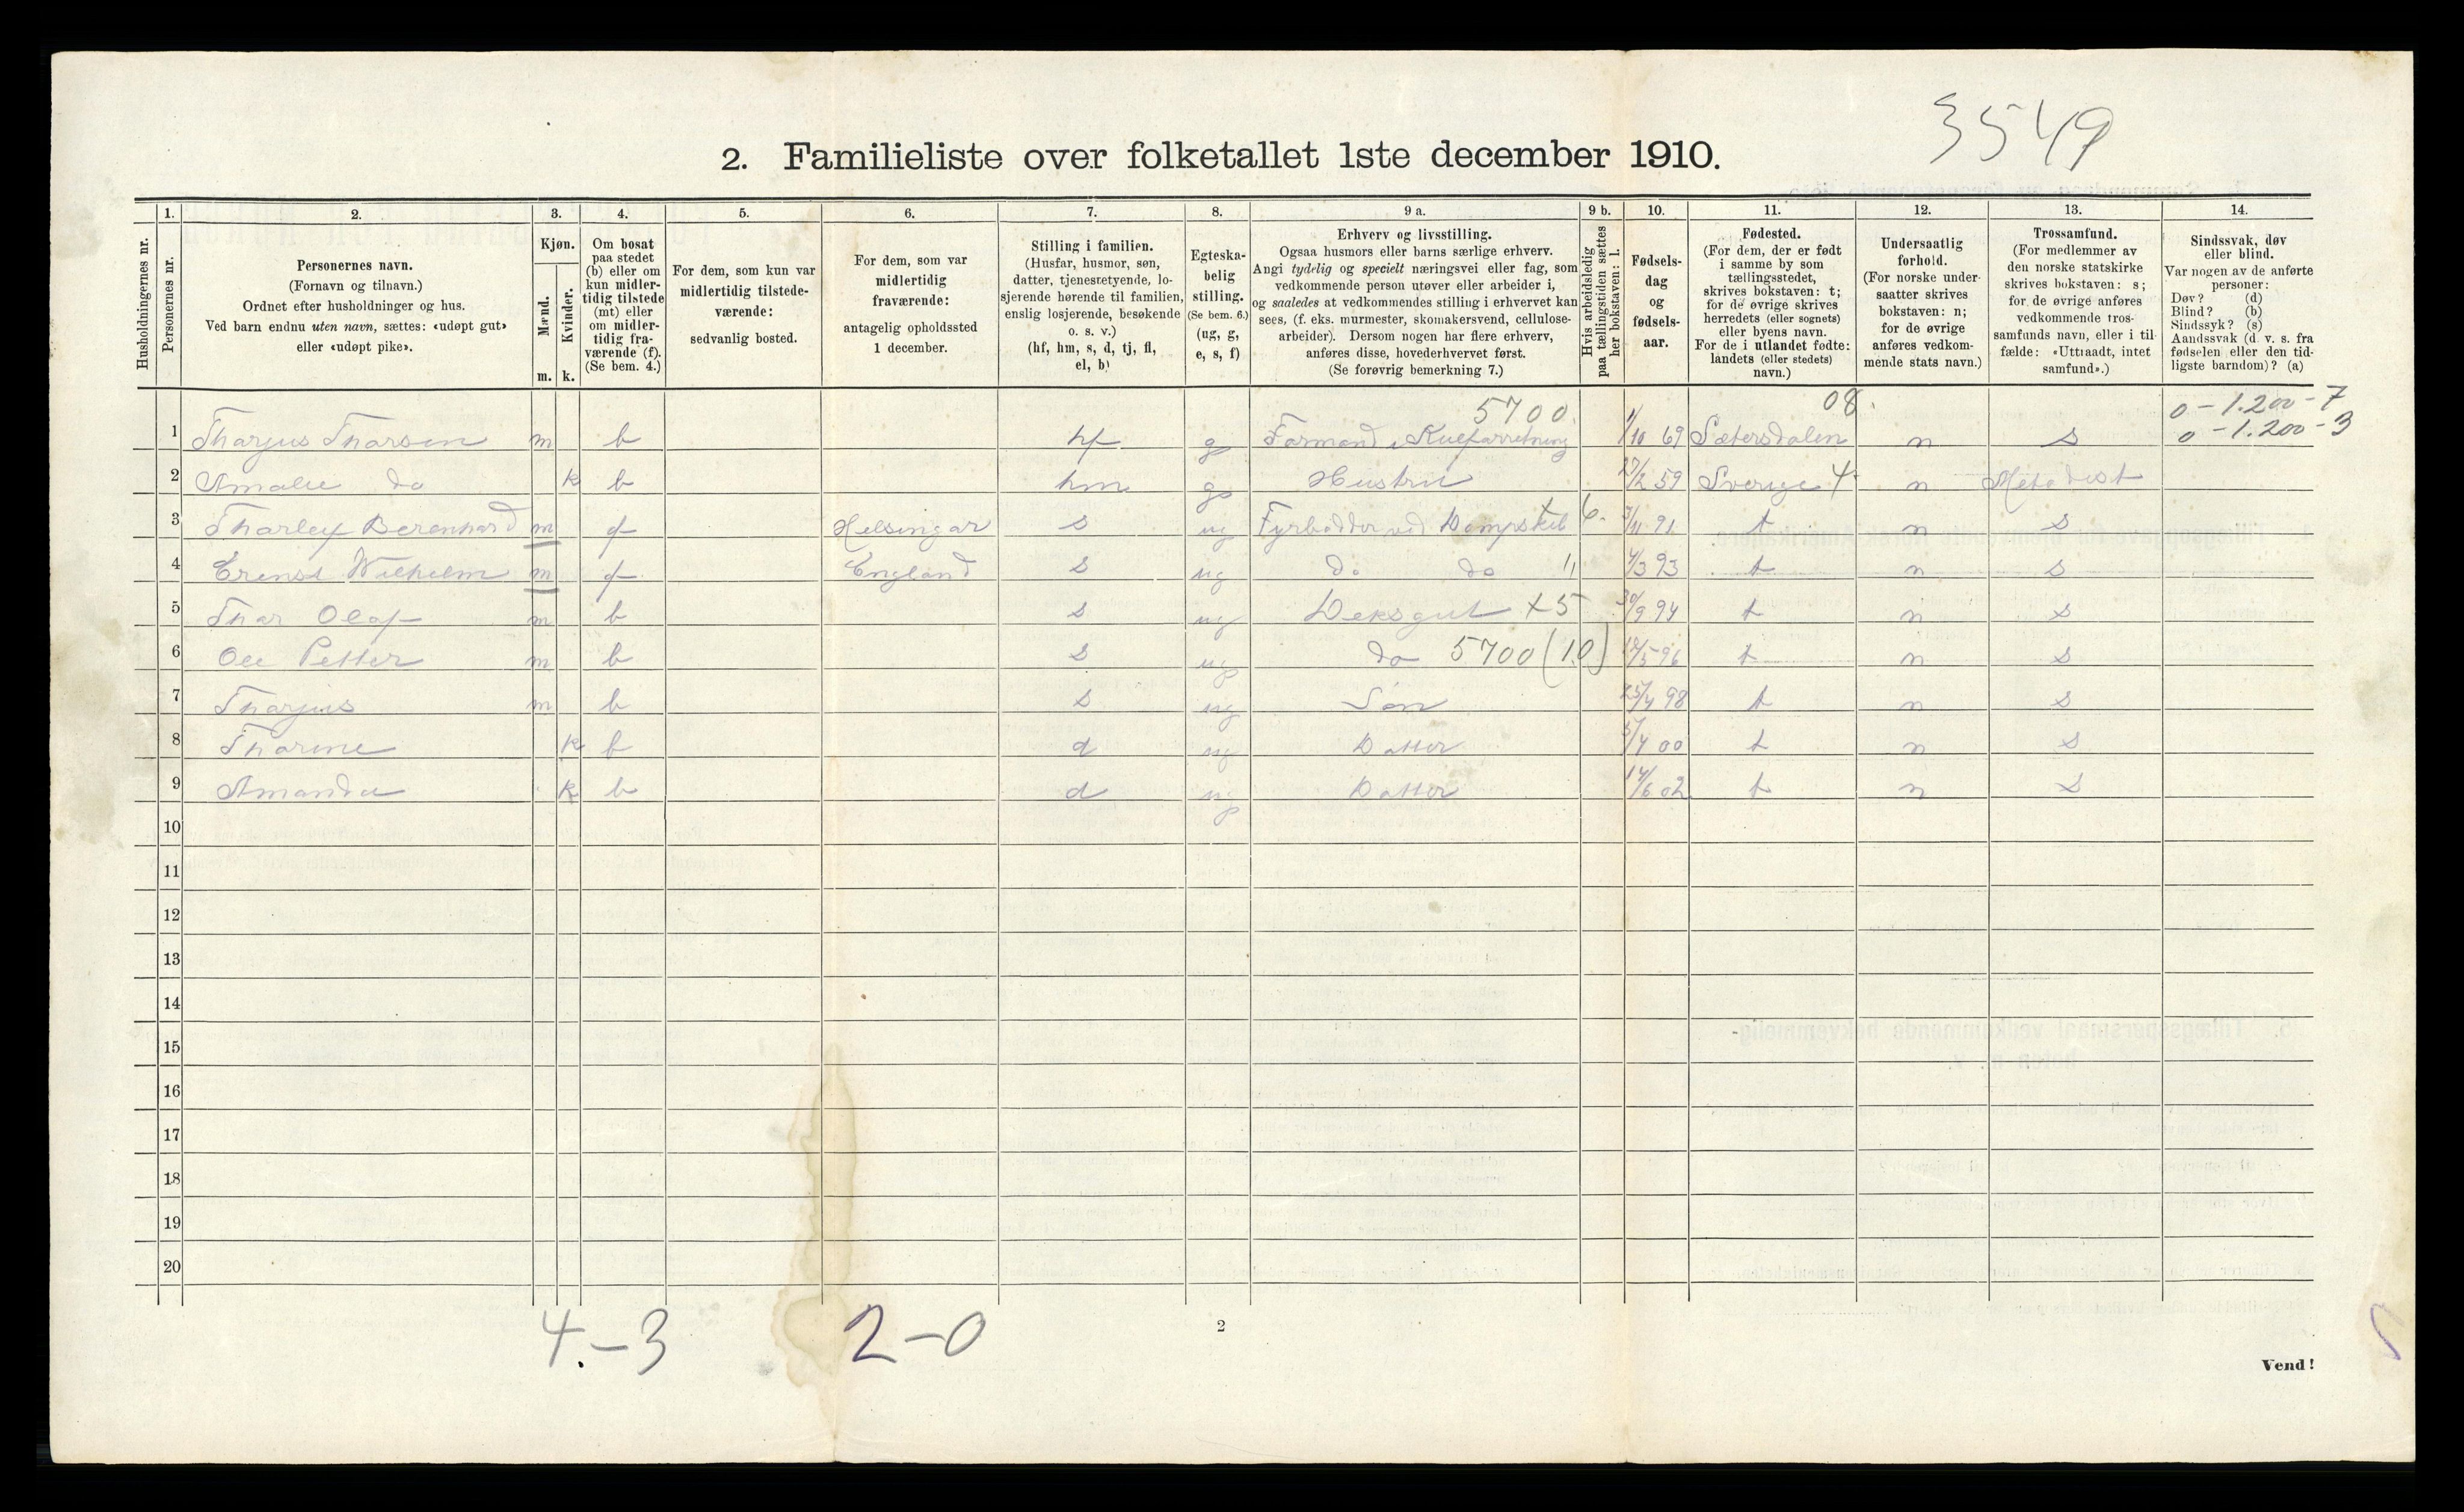 3549
2. Familieliste over folketallet 1ste december 1910.
Husholdningernes nr.
1. Personernes nr.
2. Personernes navn.
(Fornavn og tilnavn.)
Ordnet efter husholdninger og hus.
Ved barn endnu uten navn, sættes: «udøpt gut»
eller «udøpt pike».
3. Kjøn.
Mænd. m.
Kvinder. k.
4. Om bosat
paa stedet
(b) eller om
kun midler-
tidig tilstede
(mt) eller
om midler-
tidig fra-
værende (f).
(Se bem. 4.)
5. For dem, som kun var
midlertidig tilstede-
værende:
sedvanlig bosted.
6. For dem, som var
midlertidig
fraværende:
antagelig opholdssted
1 december.
7. Stilling i familien.
(Husfar, husmor, søn,
datter, tjenestetyende, lo-
sjerende hørende til familien,
enslig losjerende, besøkende
o. s. v.)
(hf, hm, s, d, tj, fl,
el, b)
8. Egteska-
belig
stilling.
(Se bem. 6.)
(ug, g,
e, s, f)
9 a. Erhverv og livsstilling.
Ogsaa husmors eller barns særlige erhverv.
Angi tydelig og specielt næringsvei eller fag, som
vedkommende person utøver eller arbeider i,
og saaledes at vedkommendes stilling i erhvervet kan
sees, (f. eks. murmester, skomakersvend, cellulose-
arbeider). Dersom nogen har flere erhverv,
anføres disse, hovederhvervet først.
(Se forøvrig bemerkning 7.)
9 b. Hvis arbeidsledig
paa tællingstiden sættes
her bokstaven: l.
10. Fødsels-
dag
og
fødsels-
aar.
11. Fødested.
(For dem, der er født
i samme by som
tællingsstedet,
skrives bokstaven: t;
for de øvrige skrives
herredets (eller sognets)
eller byens navn.
For de i utlandet fødte:
landets (eller stedets)
navn.)
12. Undersaatlig
forhold.
(For norske under-
saatter skrives
bokstaven: n;
for de øvrige
anføres vedkom-
mende stats navn.)
13. Trossamfund.
(For medlemmer av
den norske statskirke
skrives bokstaven: s;
for de øvrige anføres
vedkommende tros-
samfunds navn, eller i til-
fælde: «Uttraadt, intet
samfund».)
14. Sindssvak, døv
eller blind.
Var nogen av de anførte
personer:
Døv? (d)
Blind? (b)
Sindssyk? (s)
Aandssvak (d. v. s. fra
fødselen eller den tid-
ligste barndom)? (a)
5700. 08. 0-1.200-7
1 Tharjus Tharsen m b hf g Formand i Kulforretning 1/10 69 Sætersdalen n s 0-1.200-3
2 Amalie do k b hm g Hustru 27/2 59 Sverige 4 n Metodist
3 Tharlef Berenhard m f Helsingør s ug Fyrbødder ved Dampskib x 6. 3/11 91 t n s
4 Ernst Wilhelm m f England s ug do do " 4/3 93 t n s
5 Thor Olaf m b s ug Deksgut x5 30/9 94 t n s
6 Ole Petter m b s ug do 5700 (10) 12/5 96 t n s
7 Tharjus m b s ug Søn 25/4 98 t n s
8 Tharine k b d ug Datter 5/4 00 t n s
9 Amanda k b d ug Datter 14/6 02 t n s
10
11
12
13
14
15
16
17
18
19
20
4.-3 2-0
2
Vend!